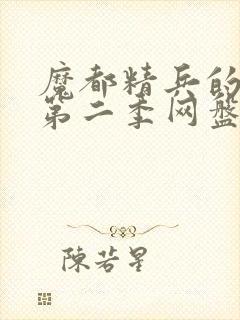 魔都精兵的
第二季网盘
陳若星